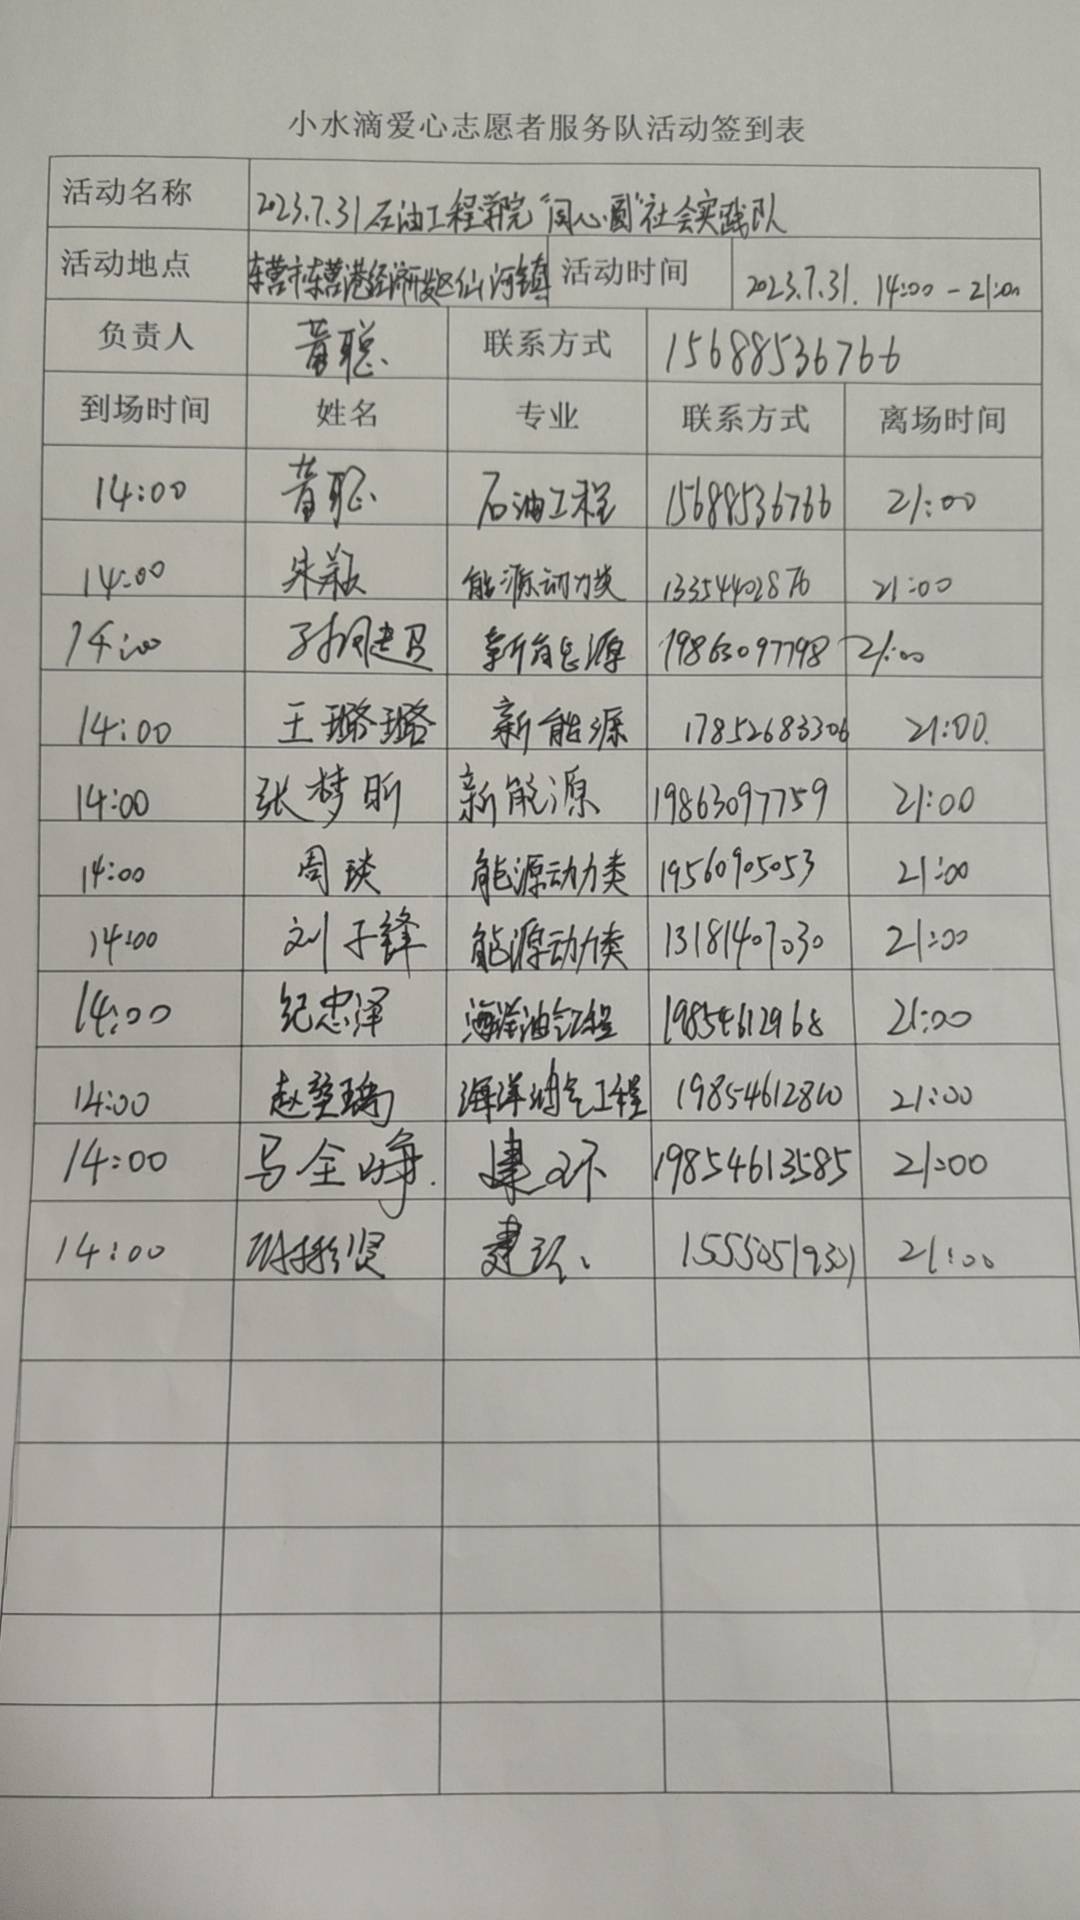 小水滴爱心志愿者服务队活动签到表
活动名称 2023.7.31石油工程学院“同心圆”社会实践队
活动地点 东营市东营港经济开发区仙河镇 活动时间 2023.7.31. 14:00-21:00
负责人 黄聪 联系方式 15688536766
到场时间 姓名 专业 联系方式 离场时间
14:00 黄聪 石油工程 15688536766 21:00
14:00 朱 能源动力类 13354402876 21:00
14:00 新能源 19863097798 21:00
14:00 王璐璐 新能源 17852683306 21:00
14:00 张梦昕 新能源 19863097759 21:00
14:00 周琰 能源动力类 19560905053 21:00
14:00 刘子锋 能源动力类 13181407030 21:00
14:00 纪忠泽 海洋油气工程 19854612968 21:00
14:00 赵 海洋油气工程 19854612860 21:00
14:00 马全峥 建环 19854613585 21:00
14:00 贤 建环 15550519301 21:00